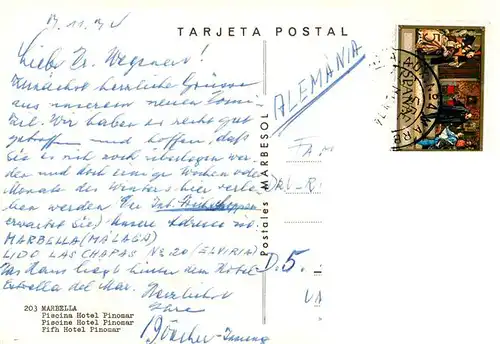 TARJETA POSTAL
ALEMANIA
Zunächst herzliche Grüsse
aus unserem neuen Domi-
zil. Wir haben es recht gut
getroffen und hoffen, daß
Sie es sich noch überlegen wer-
den und doch einige Wochen oder
Monate des Winters hier verle-
ben werden. Der
erwartet Sie) Unsere Adresse ist
MARBELLA (MÁLAGA)
LIDO LAS CHAPAS Nº 20 (ELVIRIA)
Das Haus liegt hinter dem Hotel
Estrella del Mar. Herzlichst
Ihre
Postales MARBESOL
D. 5.
203 MARBELLA
Piscina Hotel Pinomar
Piscine Hotel Pinomar
Fifh Hotel Pinomar